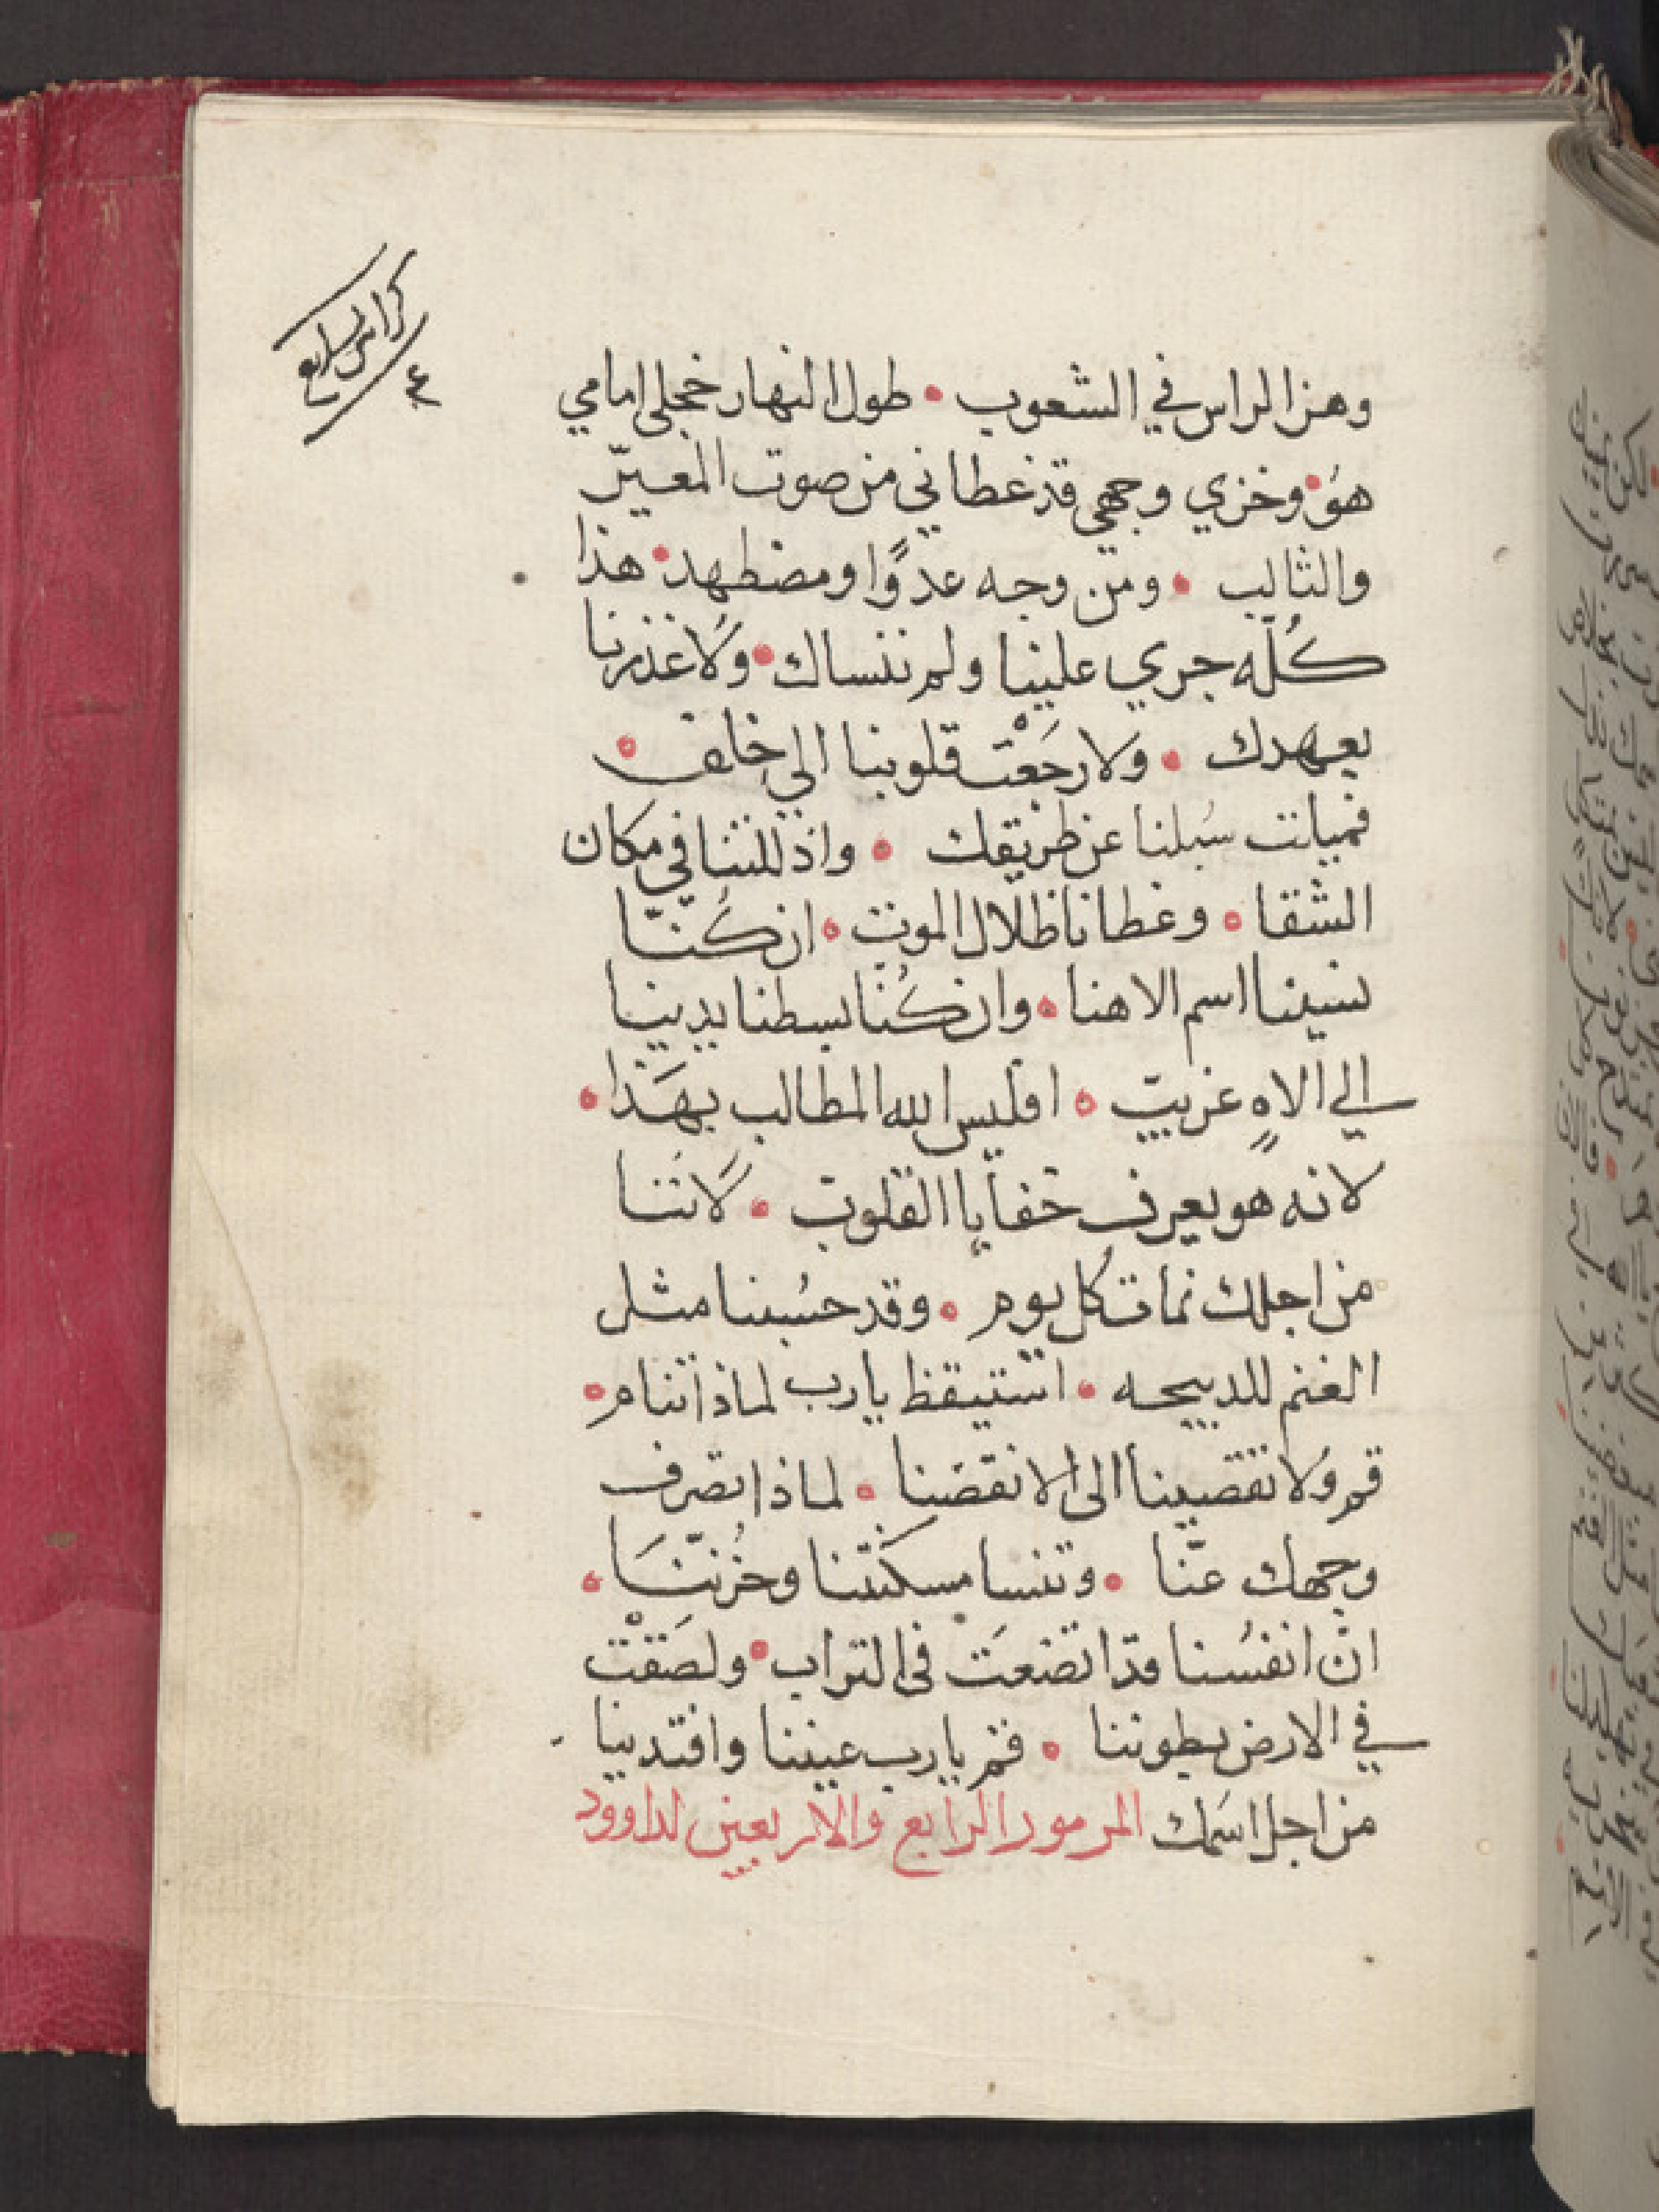 كراس رابع
٤
وهز الراس في الشعوب • طول النهار خجلى امامي
هوُ • وخزي وجهي قد غطاني من صوت المعيرّ
والثالب • ومن وجه عدوًا ومضطهد • هذا
كُلّه جري علينا ولم ننساك • ولا غدرنا
بعهدك • ولا رجَعْت قلوبنا الى خلف •
فميلت سُبلنا عن طريقك • واذللتنا في مكان
الشقا • وغطانا ظلال الموت • ان كُنّا
نسينا اسم الاهنا • وان كُنا بسطنا يدينا
الي الاهٍ غريب • افليس الله المطالب بهَذا •
لانه هو يعرف خفايا القلوب • لاَننا
من اجلك نمات كُل يوم • وقد حسُبنا مثل
الغنم للدبيحه • استيقظ يا رب لماذا تنام •
قم ولا تقصينا الى الانقضَنا • لماذا تصرف
وجهك عنّا • وتنسا مسكنَتنا وحُزننَا •
انّ انفسُنا قد اتضعَت فى التراب • ولصَقْت
في الارض بطوننا • قم يا رب عيننا وافتدينا
من اجل اسمَك المرمور الرابع والاربعين لداوود